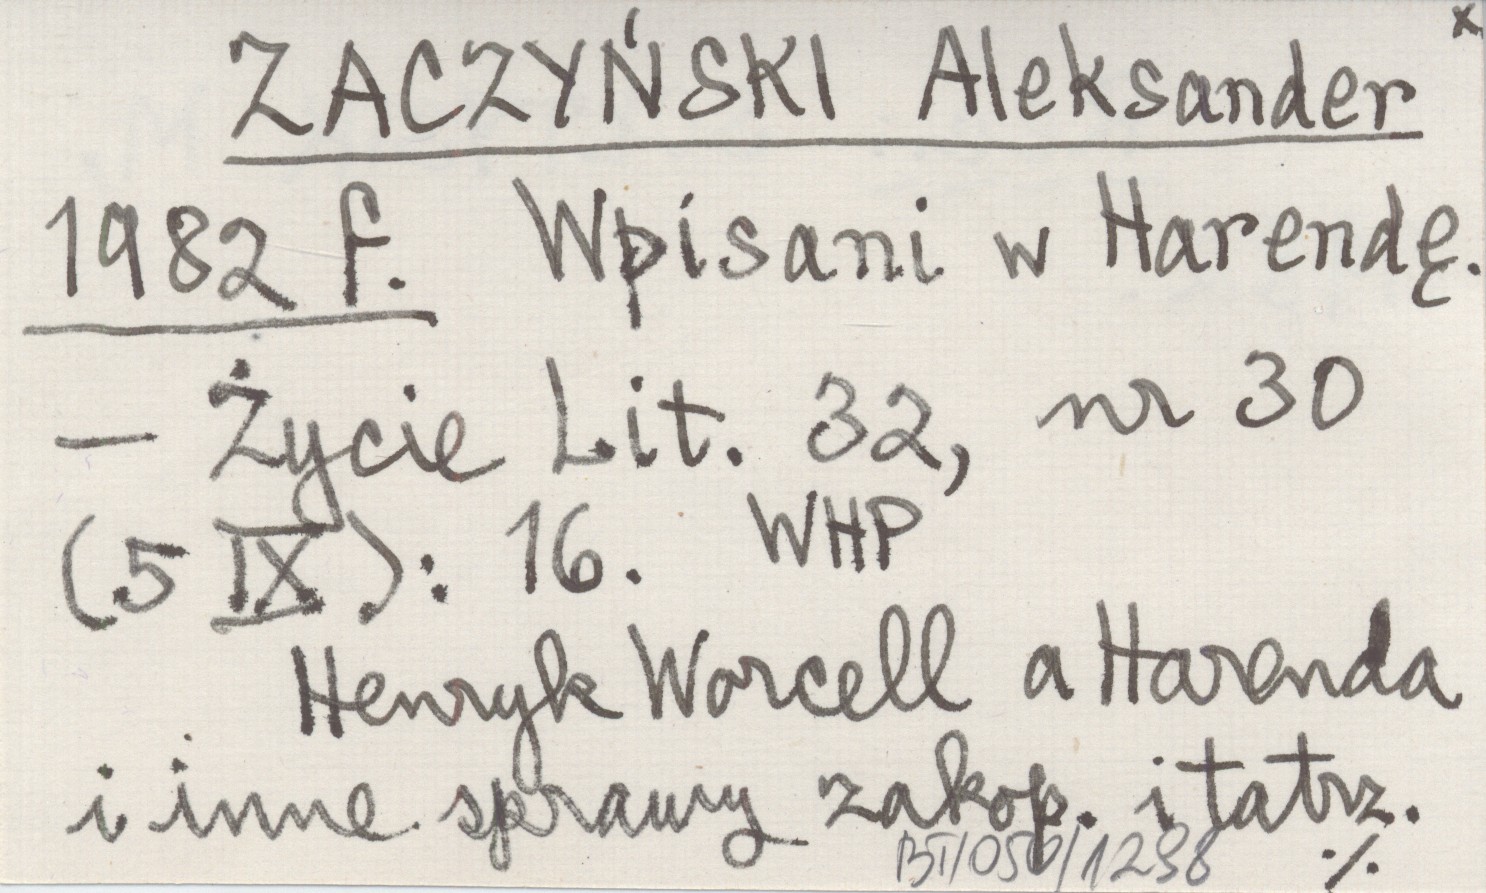 x
ZACZYŃSKI Aleksander
1982 f. Wpisani w Harendę.
— Życie Lit. 32, nr 30
(5 IX): 16. WHP
Henryk Worcell a Harenda
i inne sprawy zakop. i tatrz.
BT/050/1238
./.